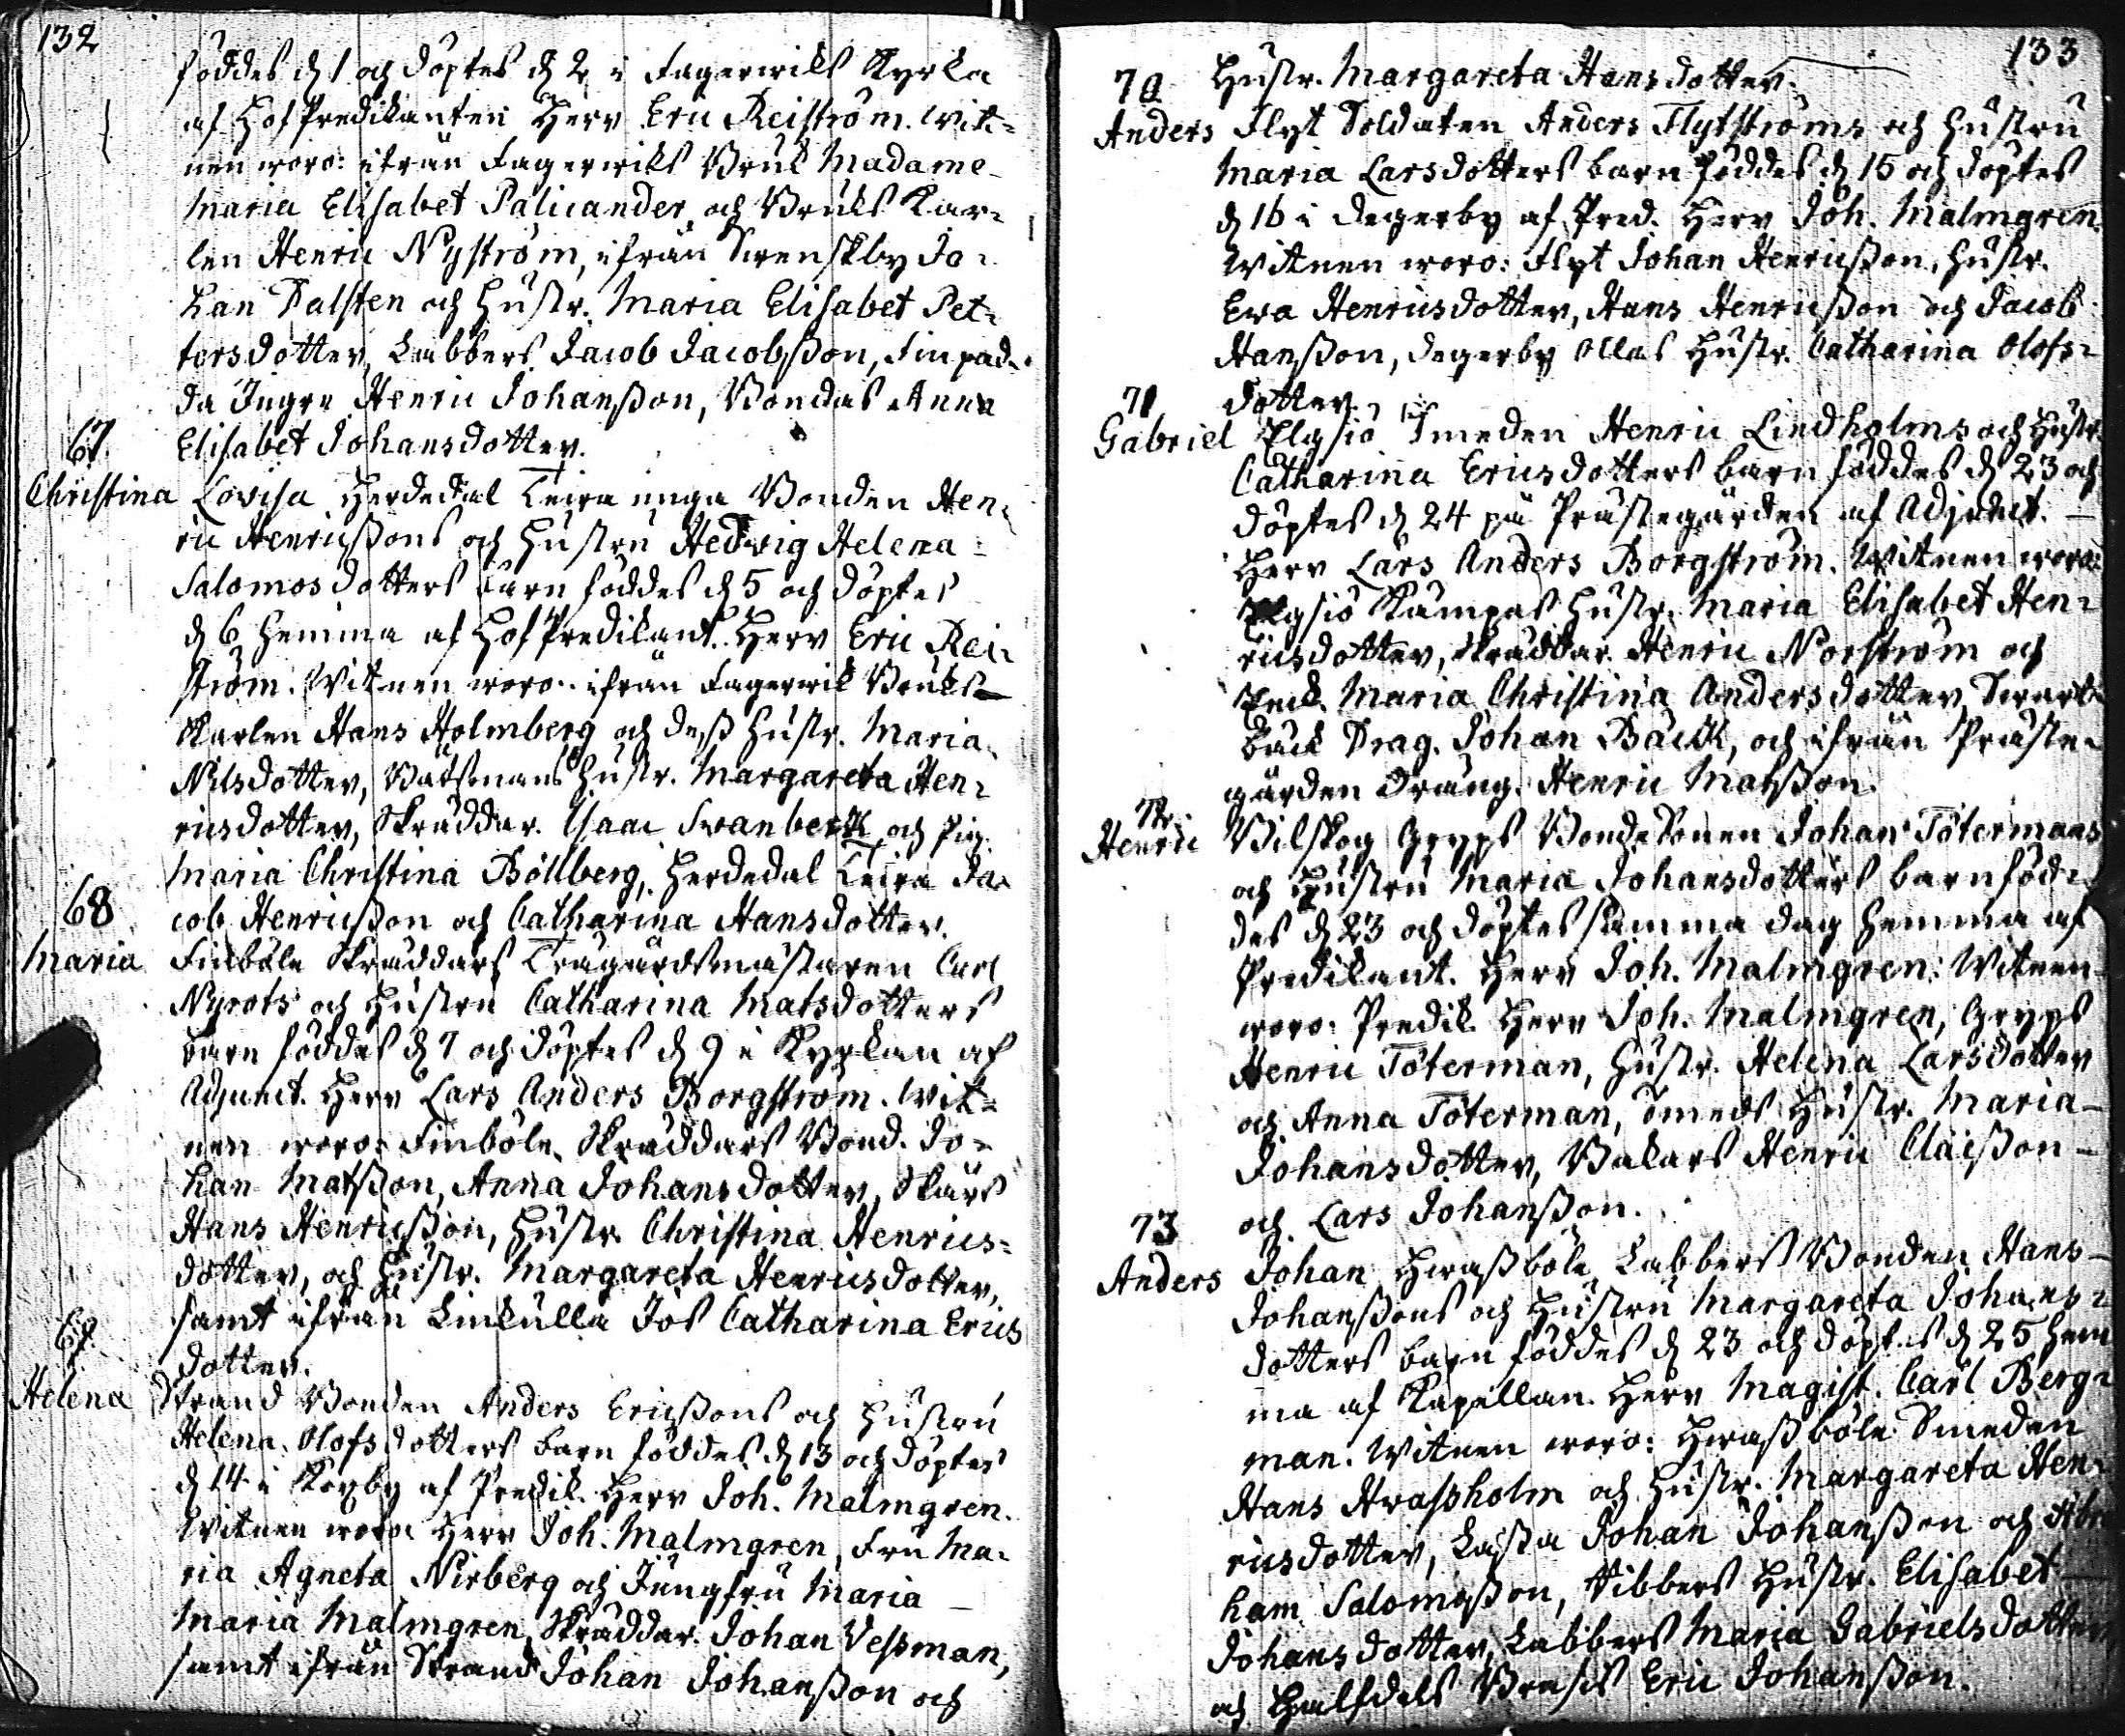 132
föddes d 1 och döptes d 2 i Fagerwiks Kyrka
af HofPredikanten Herr Eric Reiström. Wit=
nen woro: ifrån Fagerwiks Bruk Madame
Maria Elisabet Palicander, och Bruks Kar=
len Henric Nyström, ifrån Swenskby Jo=
han Dalsten och Hustr. Maria Elisabet Pet=
tersdotter, Labbers Jacob Jacobsson,
Henric Johansson, Bondas Anna
Elisabet Johansdotter.
67.
Christina Lovisa Herdedal Teira unga Bonden Hen=
ric Henricssons och Hustru Hedwig Helena
Salomosdotters barn föddes d 5 och döptes
d 6 hemma af HofPredikant. Herr Eric Rei=
ström. Witnen woro: ifrån Fagerwik Bruks
Karlen Hans Holmberg och dess Hustr. Maria
Nilsdotter, Båtsmans Hustr. Margareta Hen=
ricsdotter, Skräddar. Isaac Swanberk och Pig.
Maria Christina Böllberg, Herdedal Teira Ja=
cob Henricsson och Catharina Hansdotter.
68
Maria Finböle Skräddars Trägårdsmästaren Carl
Nyrots och Hustru Catharina Matsdotters
barn föddes d 7 och döptes d 9 i Kyrkan af
Adjunct. Herr Lars Anders Borgström. Wit=
nen woro: Finböle Skräddars Bond. Jo=
han Matsson, Anna Johansdotter, Skärs
Hans Henricsson, Hustr. Christina Henrics=
dotter, och Hustr. Margareta Henricsdotter,
samt ifrån Linkulla Jos Catharina Erics
dotter.
69.
Helena Strand Bonden Anders Ericssons och Hustru
Helena Olofsdotters barn föddes d 13 och döptes
d 14 i Kopby af Predik. Herr Joh. Malmgren.
Witnen woro: Herr Joh. Malmgren, Fru Ma=
ria Agneta Nirberg och Jungfru Maria
Maria Malmgren, Skräddar. Johan Wessman,
samt ifrån Strand Johan Johansson och
133
Hustr. Margareta Hansdotter.
70
Anders Flyt Soldaten Anders Flytströms och Hustru
Maria Larsdotters barn föddes d 15 och döptes
d 16 i Degerby af Pred. Herr Joh. Malmgren.
Witnen woro: Flyt Johan Henricsson, Hustr.
Ewa Henricsdotter, Hans Henricsson och Jacob
Hansson, Degerby Ollas Hustr. Catharina Olofs=
dotter.
71
Gabriel Elgsiö Smeden Henric Lindholms och Hustr.
Catharina Ericsdotters barn föddes d 23 och
döptes d 24 på Prästegården af Adjunct.
Herr Lars Anders Borgström. Witnen woro:
Elgsiö Kämpas Hustr. Maria Elisabet Hen=
ricsdotter, Skräddar. Henric Norström och
Maria Christina Andersdotter, Swart=
bäck Drag. Johan Bäckk, och ifrån Präste=
gården Dräng. Henric Matsson.
72.
Henric Bilskog Gryps BondeSonen Johan Tötermans
och Hustru Maria Johansdotters barn föd=
des d 23 och döptes samma dag hemma af
Predikant. Herr Joh. Malmgren: Witnen
woro: Predik. Herr Joh. Malmgren, Gryps
Henric Töterman, Hustr. Helena Larsdotter
och Anna Töterman, Smeds Hustr. Maria
Johansdotter, Bakars Henric Claësson
och Lars Johansson.
73
Anders Johan Hwassböle Labbers Bonden Hans
Johanssons och Hustru Margareta Johans=
dotters barn föddes d 23 och döptes d 25 hem
ma af Kapellan. Herr Magist. Carl Berg=
man. Witnen woro: Hwassböle Smeden
Hans Hwassholm och Hustr. Margareta Hen=
ricsdotter, Lassa Johan Johansson och Abra
ham Salomosson, Wibbers Hustr. Elisabet
Johansdotter, Labbers Maria Gabrielsdotter
och Halfdels Eric Johansson.